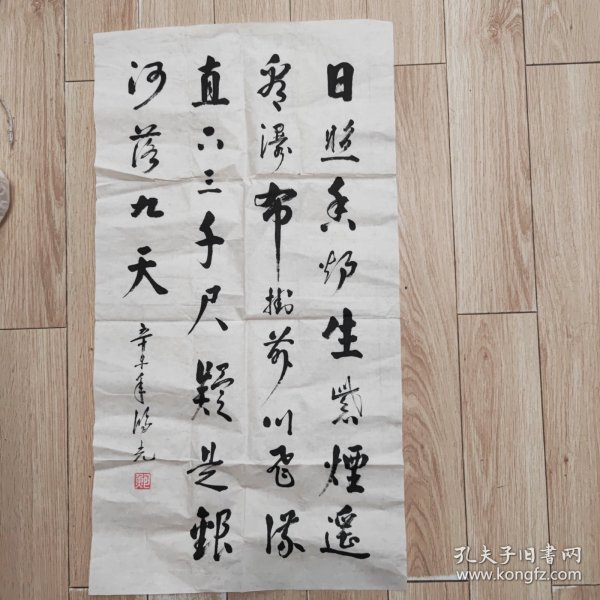 日照香炉生紫煙遥
看瀑布掛前川飛流
直下三千尺疑是銀
河落九天
辛未年
孔夫子旧書网
www.kongfz.com